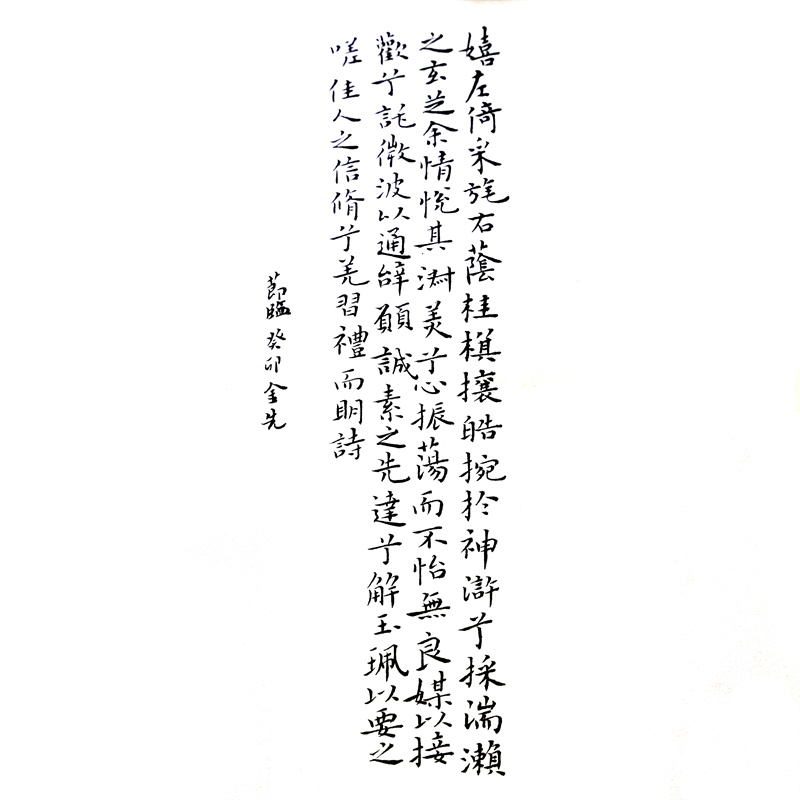 嬉左倚采旄右蔭桂旗攘皓捥於神滸兮採湍瀨
之玄芝余情悅其淑美兮心振蕩而不怡無良媒以接
歡兮託微波以通辭願誠素之先達兮解玉珮以要之
嗟佳人之信脩兮羌習禮而明詩
節臨癸卯金先